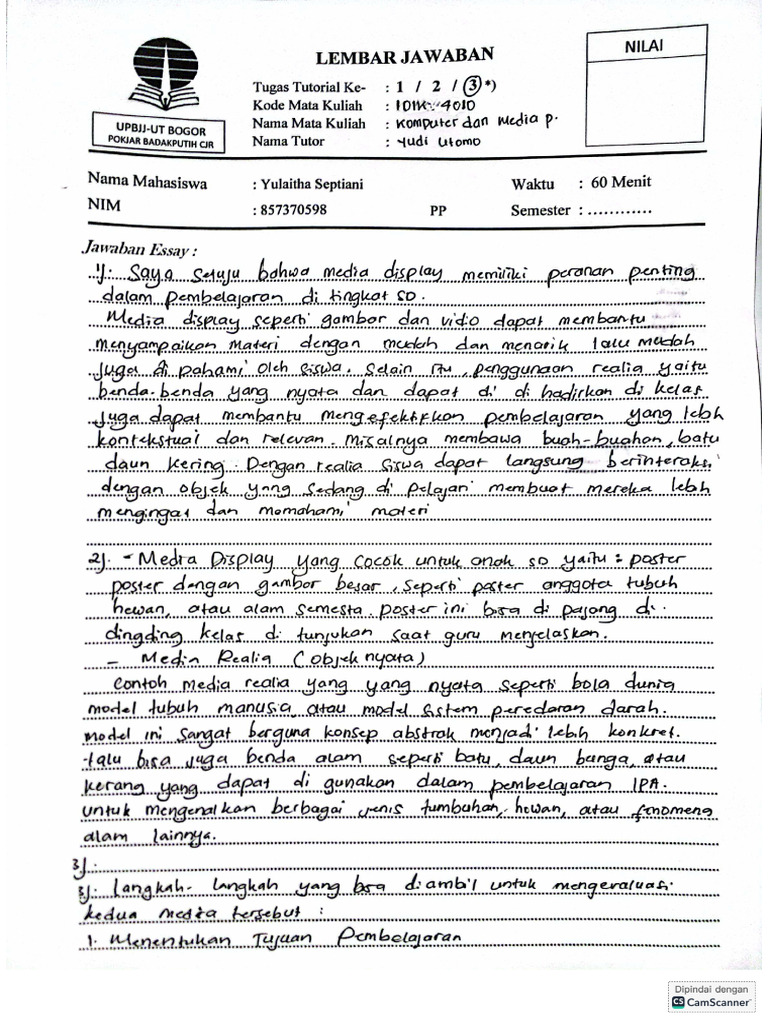 LEMBAR JAWABAN
NILAI
Tugas Tutorial Ke- : 1 / 2 / 3 *)
Kode Mata Kuliah : IDIK 4010
Nama Mata Kuliah : Komputer dan Media P.
Nama Tutor : Yudi Utomo
UPBJJ-UT BOGOR
POKJAR BADAKPUTIH CJR
Nama Mahasiswa : Yulaitha Septiani Waktu : 60 Menit
NIM : 857370598 PP Semester : ............
Jawaban Essay :
1). Saya setuju bahwa media display memiliki peranan penting
dalam pembelajaran di tingkat SD.
Media display seperti gambar dan vidio dapat membantu
menyampaikan materi dengan mudah dan menarik lalu mudah
juga di pahami oleh siswa. Selain itu, penggunaan realia yaitu
benda-benda yang nyata dan dapat di di hadirkan di kelas
juga dapat membantu mengefektifkan pembelajaran yang lebih
kontekstual dan relevan. Misalnya membawa buah-buahan, batu
daun kering. Dengan realia siswa dapat langsung berinteraksi
dengan objek yang sedang di pelajari membuat mereka lebih
mengingat dan momahami materi
2). - Media Display yang cocok untuk anak SD yaitu : poster
poster dengan gambar besar, seperti poster anggota tubuh
hewan, atau alam semesta. poster ini bisa di pajang di
dingding kelas di tunjukan saat guru menjelaskan.
- Media Realia (objek nyata)
Contoh media realia yang yang nyata seperti bola dunia
model tubuh manusia, atau model sistem peredaran darah.
model ini sangat berguna konsep abstrak menjadi lebih konkret.
lalu bisa juga benda alam seperti batu, daun bunga, atau
kerang yang dapat di gunakan dalam pembelajaran IPA.
untuk mengenalkan berbagai jenis tumbuhan, hewan, atau fenomena
alam lainnya.
3).
3). Langkah-langkah yang bisa diambil untuk mengevaluasi
kedua media tersebut :
1. Menentukan Tujuan Pembelajaran
Dipindai dengan
CS CamScanner